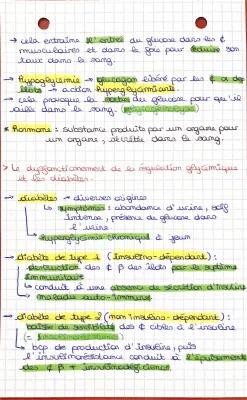 → cela entraîne l'entrée du glucose dans les ¢
musculaires et dans le foie pour réduire son
taux dans le sang.
→ Hypoglycémie → glucagon libéré par les ¢ α des
îlots → action hyperglycémiante.
→ cela provoque la sortie du glucose pour qu'il
aille dans le sang.
* Hormone : substance produite par un organe pour
un organe, sécrétée dans le sang.
> Le dysfonctionnement de la régulation glycémique
et les diabètes.
→ diabètes → diverses origines
↳ symptômes : abondance d'urine, soif
intense, présence de glucose dans
l'urine
↳ hyperglycémie chronique à jeun
→ diabète de type 1 (insulino-dépendant) :
destruction des ¢ β des îlots par le système
immunitaire
↳ conduit à une absence de sécrétion d'insuline
↳ maladie auto-immune
→ diabète de type 2 (non insulino-dépendant) :
baisse de sensibilité des ¢ cibles à l'insuline
↳ bcp de production d'insuline, puis
l'insulinorésistance conduit à l'épuisement
des ¢ β →